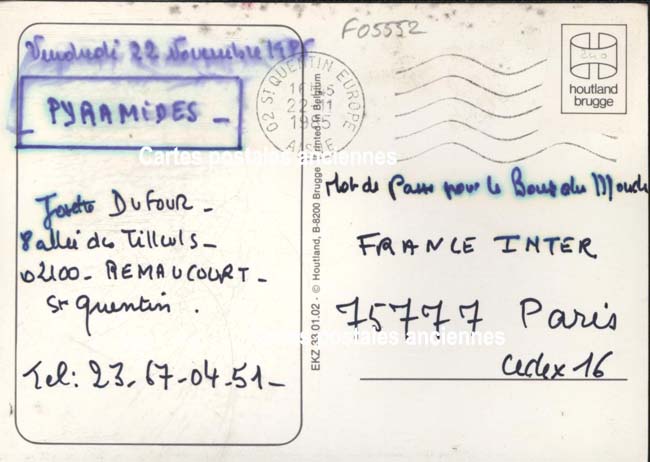 F05552
Vendredi 22 Novembre 1985
- PYRAMIDES -
Josette DUFOUR -
8 allée des Tilleuls -
02100 - REMAUCOURT -
St Quentin .
Tel: 23.67-04-51 -
02 ST QUENTIN EUROPE
16H45
22-11
1985
AISNE
houtland
brugge
EKZ 33.01.02 - © Houtland, B-8200 Brugge Printed in Belgium
Mot de Passe pour le Bout du Monde
FRANCE INTER
75777 Paris
Cedex 16
Cartes postales anciennes
Cartes postales anciennes